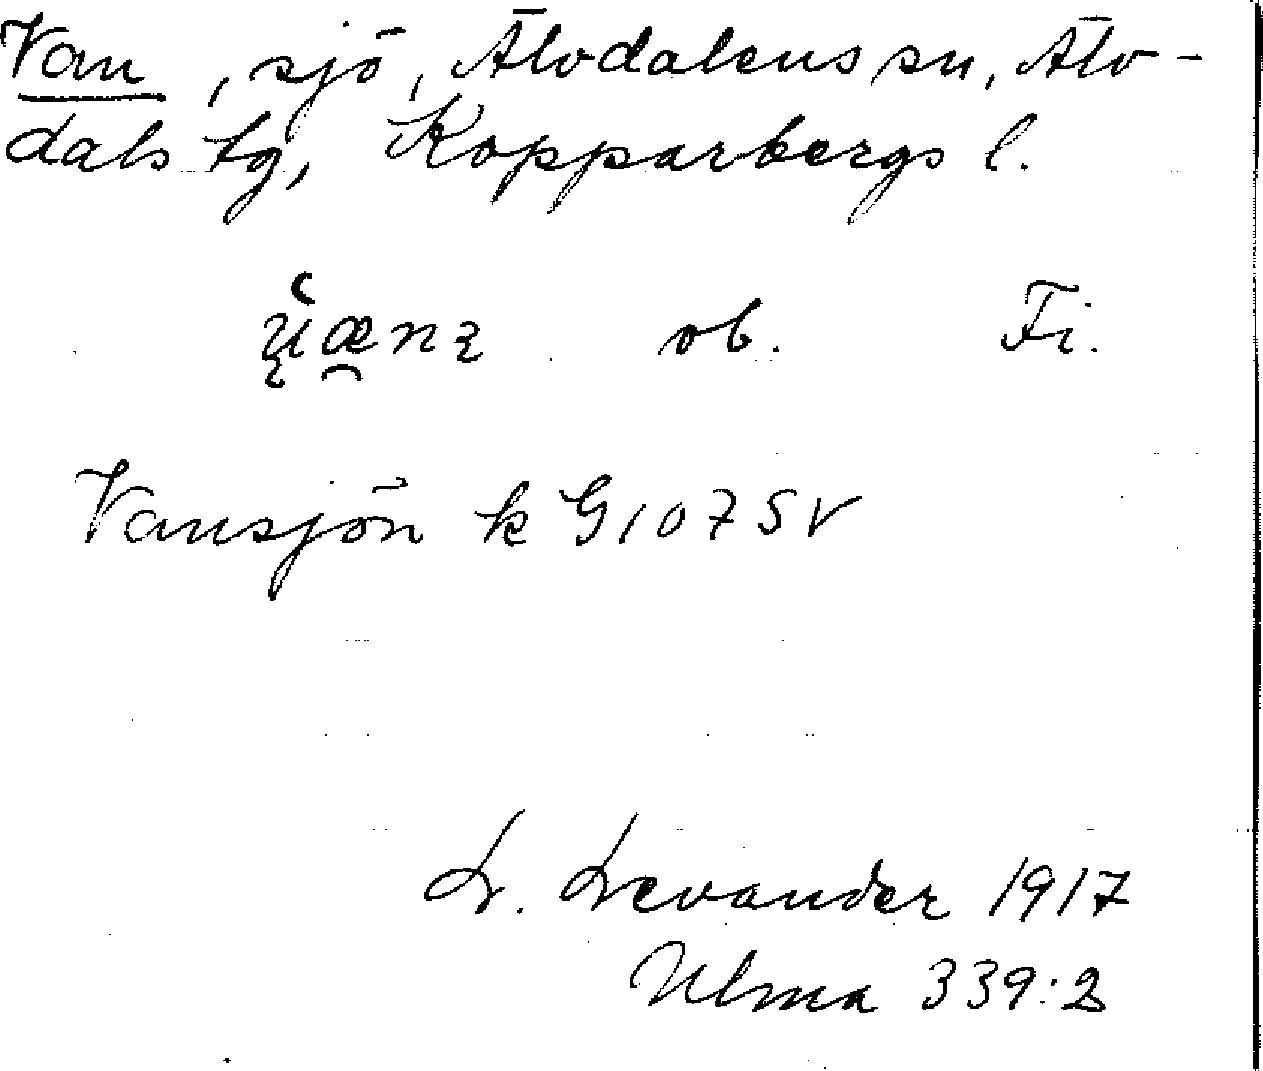 Van, sjö, Älvdalens sn, Älv-
dals tg, Kopparbergs l.
ob. Fi.
Vansjön k G107 SV
L. Levander 1917
Ulma 339:2